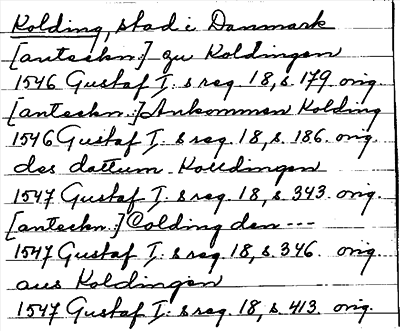 Kolding, stad i Danmark
[anteckn.] zu Koldingen
1546 Gustaf I:s reg. 18, s. 179 orig.
[anteckn.] Ankommen Kolding
1546 Gustaf I:s reg. 18, s. 186. orig.
des dattum. Kolldingen
1547 Gustaf I:s reg. 18, s. 343. orig.
[anteckn.] Colding den ---
1547 Gustaf I:s reg. 18, s. 346. orig.
aus Koldingen
1547 Gustaf I:s reg. 18, s. 413. orig.